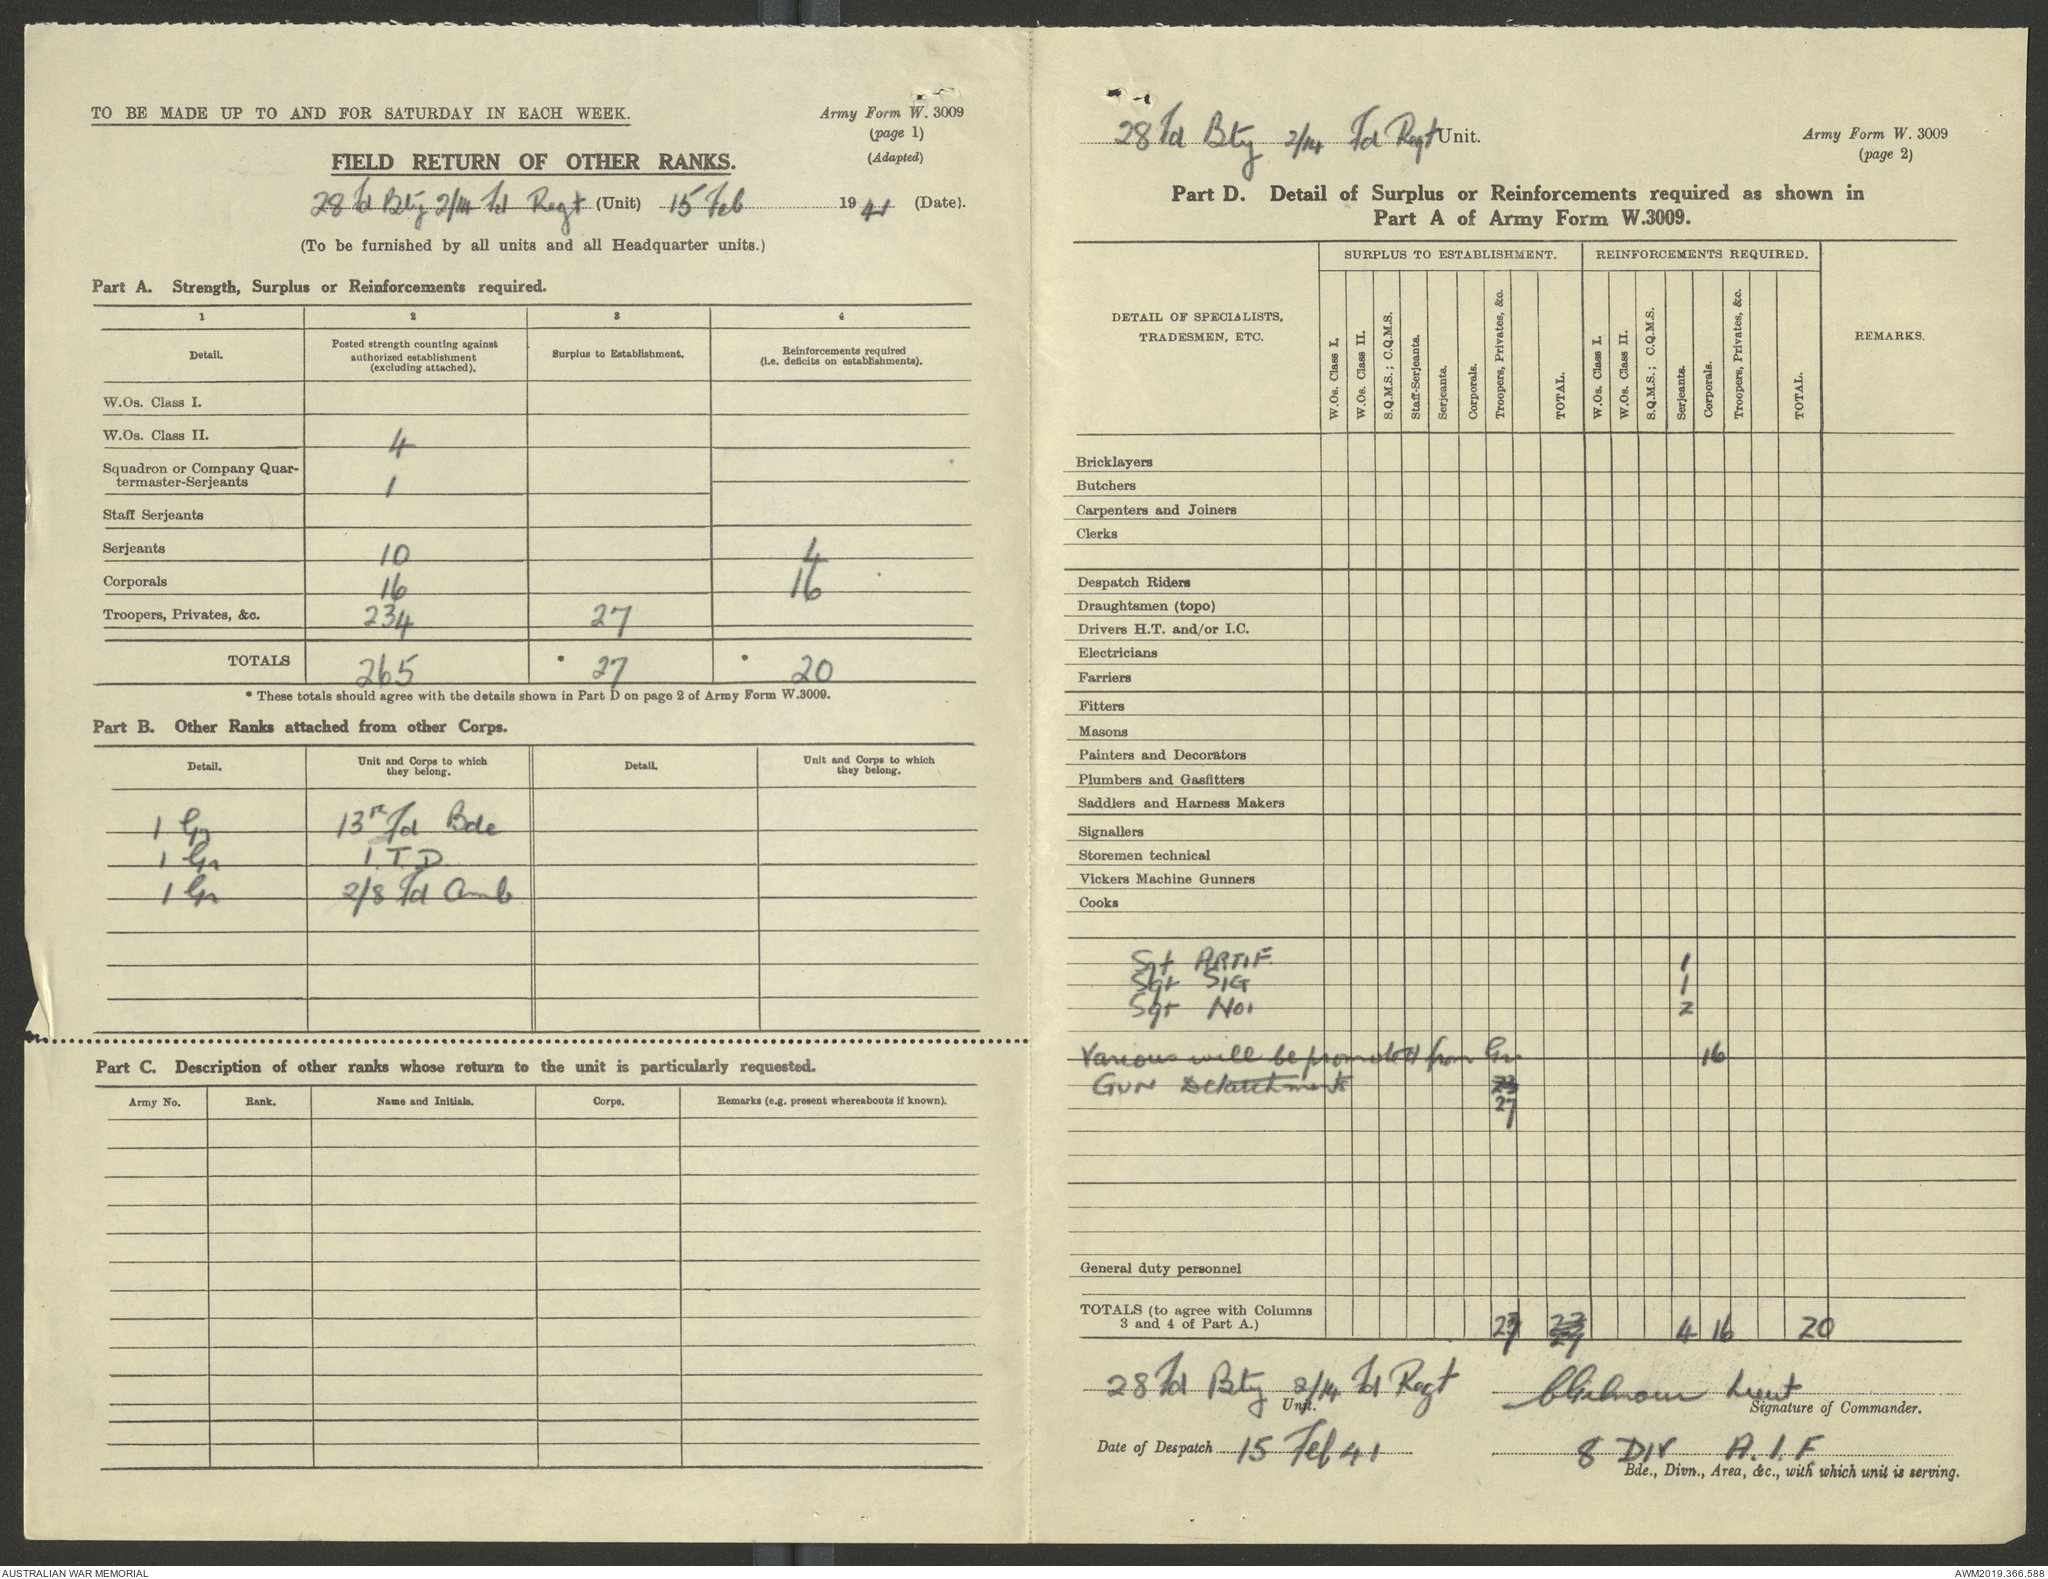 TO BE MADE UP TO AND FOR SATURDAY IN EACH WEEK.
Army Form W. 3009
(page 1)
(Adapted)
FIELD RETURN OF OTHER RANKS.
28 Fd Bty 2/14 Fd Regt (Unit) 15 Feb 1941 (Date).
(To be furnished by all units and all Headquarter units.)
Part A. Strength, Surplus or Reinforcements required.
1 2 3 4
Detail. Posted strength counting against authorized establishment (excluding attached). Surplus to Establishment. Reinforcements required (i.e. deficits on establishments).
W.Os. Class I.
W.Os. Class II. 4
Squadron or Company Quar-
termaster-Serjeants 1
Staff Serjeants
Serjeants 10 4
Corporals 16 16
Troopers, Privates, &c. 234 27
TOTALS 265 * 27 * 20
* These totals should agree with the details shown in Part D on page 2 of Army Form W.3009.
Part B. Other Ranks attached from other Corps.
Detail. Unit and Corps to which they belong. Detail. Unit and Corps to which they belong.
1 Gnr 13th Fd Bde
1 Gnr I.T.D.
1 Gnr 2/8 Fd Amb
Part C. Description of other ranks whose return to the unit is particularly requested.
Army No. Rank. Name and Initials. Corps. Remarks (e.g. present whereabouts if known).
28 Fd Bty 2/14 Fd Regt Unit.
Army Form W. 3009
(page 2)
Part D. Detail of Surplus or Reinforcements required as shown in
Part A of Army Form W.3009.
SURPLUS TO ESTABLISHMENT. REINFORCEMENTS REQUIRED.
DETAIL OF SPECIALISTS, TRADESMEN, ETC.
W.Os. Class I. W.Os. Class II. S.Q.M.S.; C.Q.M.S. Staff-Serjeants. Serjeants. Corporals. Troopers, Privates, &c. TOTAL. W.Os. Class I. W.Os. Class II. S.Q.M.S.; C.Q.M.S. Serjeants. Corporals. Troopers, Privates, &c. TOTAL. REMARKS.
Bricklayers
Butchers
Carpenters and Joiners
Clerks
Despatch Riders
Draughtsmen (topo)
Drivers H.T. and/or I.C.
Electricians
Farriers
Fitters
Masons
Painters and Decorators
Plumbers and Gasfitters
Saddlers and Harness Makers
Signallers
Storemen technical
Vickers Machine Gunners
Cooks
Sgt ARTIF. 1
Sgt SIG 1
Sgt No1 2
Various will be promoted from Gnr 16
GUN Detachments 23
27
General duty personnel
TOTALS (to agree with Columns
3 and 4 of Part A.) 27 23 27 4 16 20
28 Fd Bty 2/14 Fd Regt
Unit.
CGilmour Lieut
Signature of Commander.
Date of Despatch 15 Feb 41
8 DIV A.I.F.
Bde., Divn., Area, &c., with which unit is serving.
AUSTRALIAN WAR MEMORIAL
AWM2019.366.588